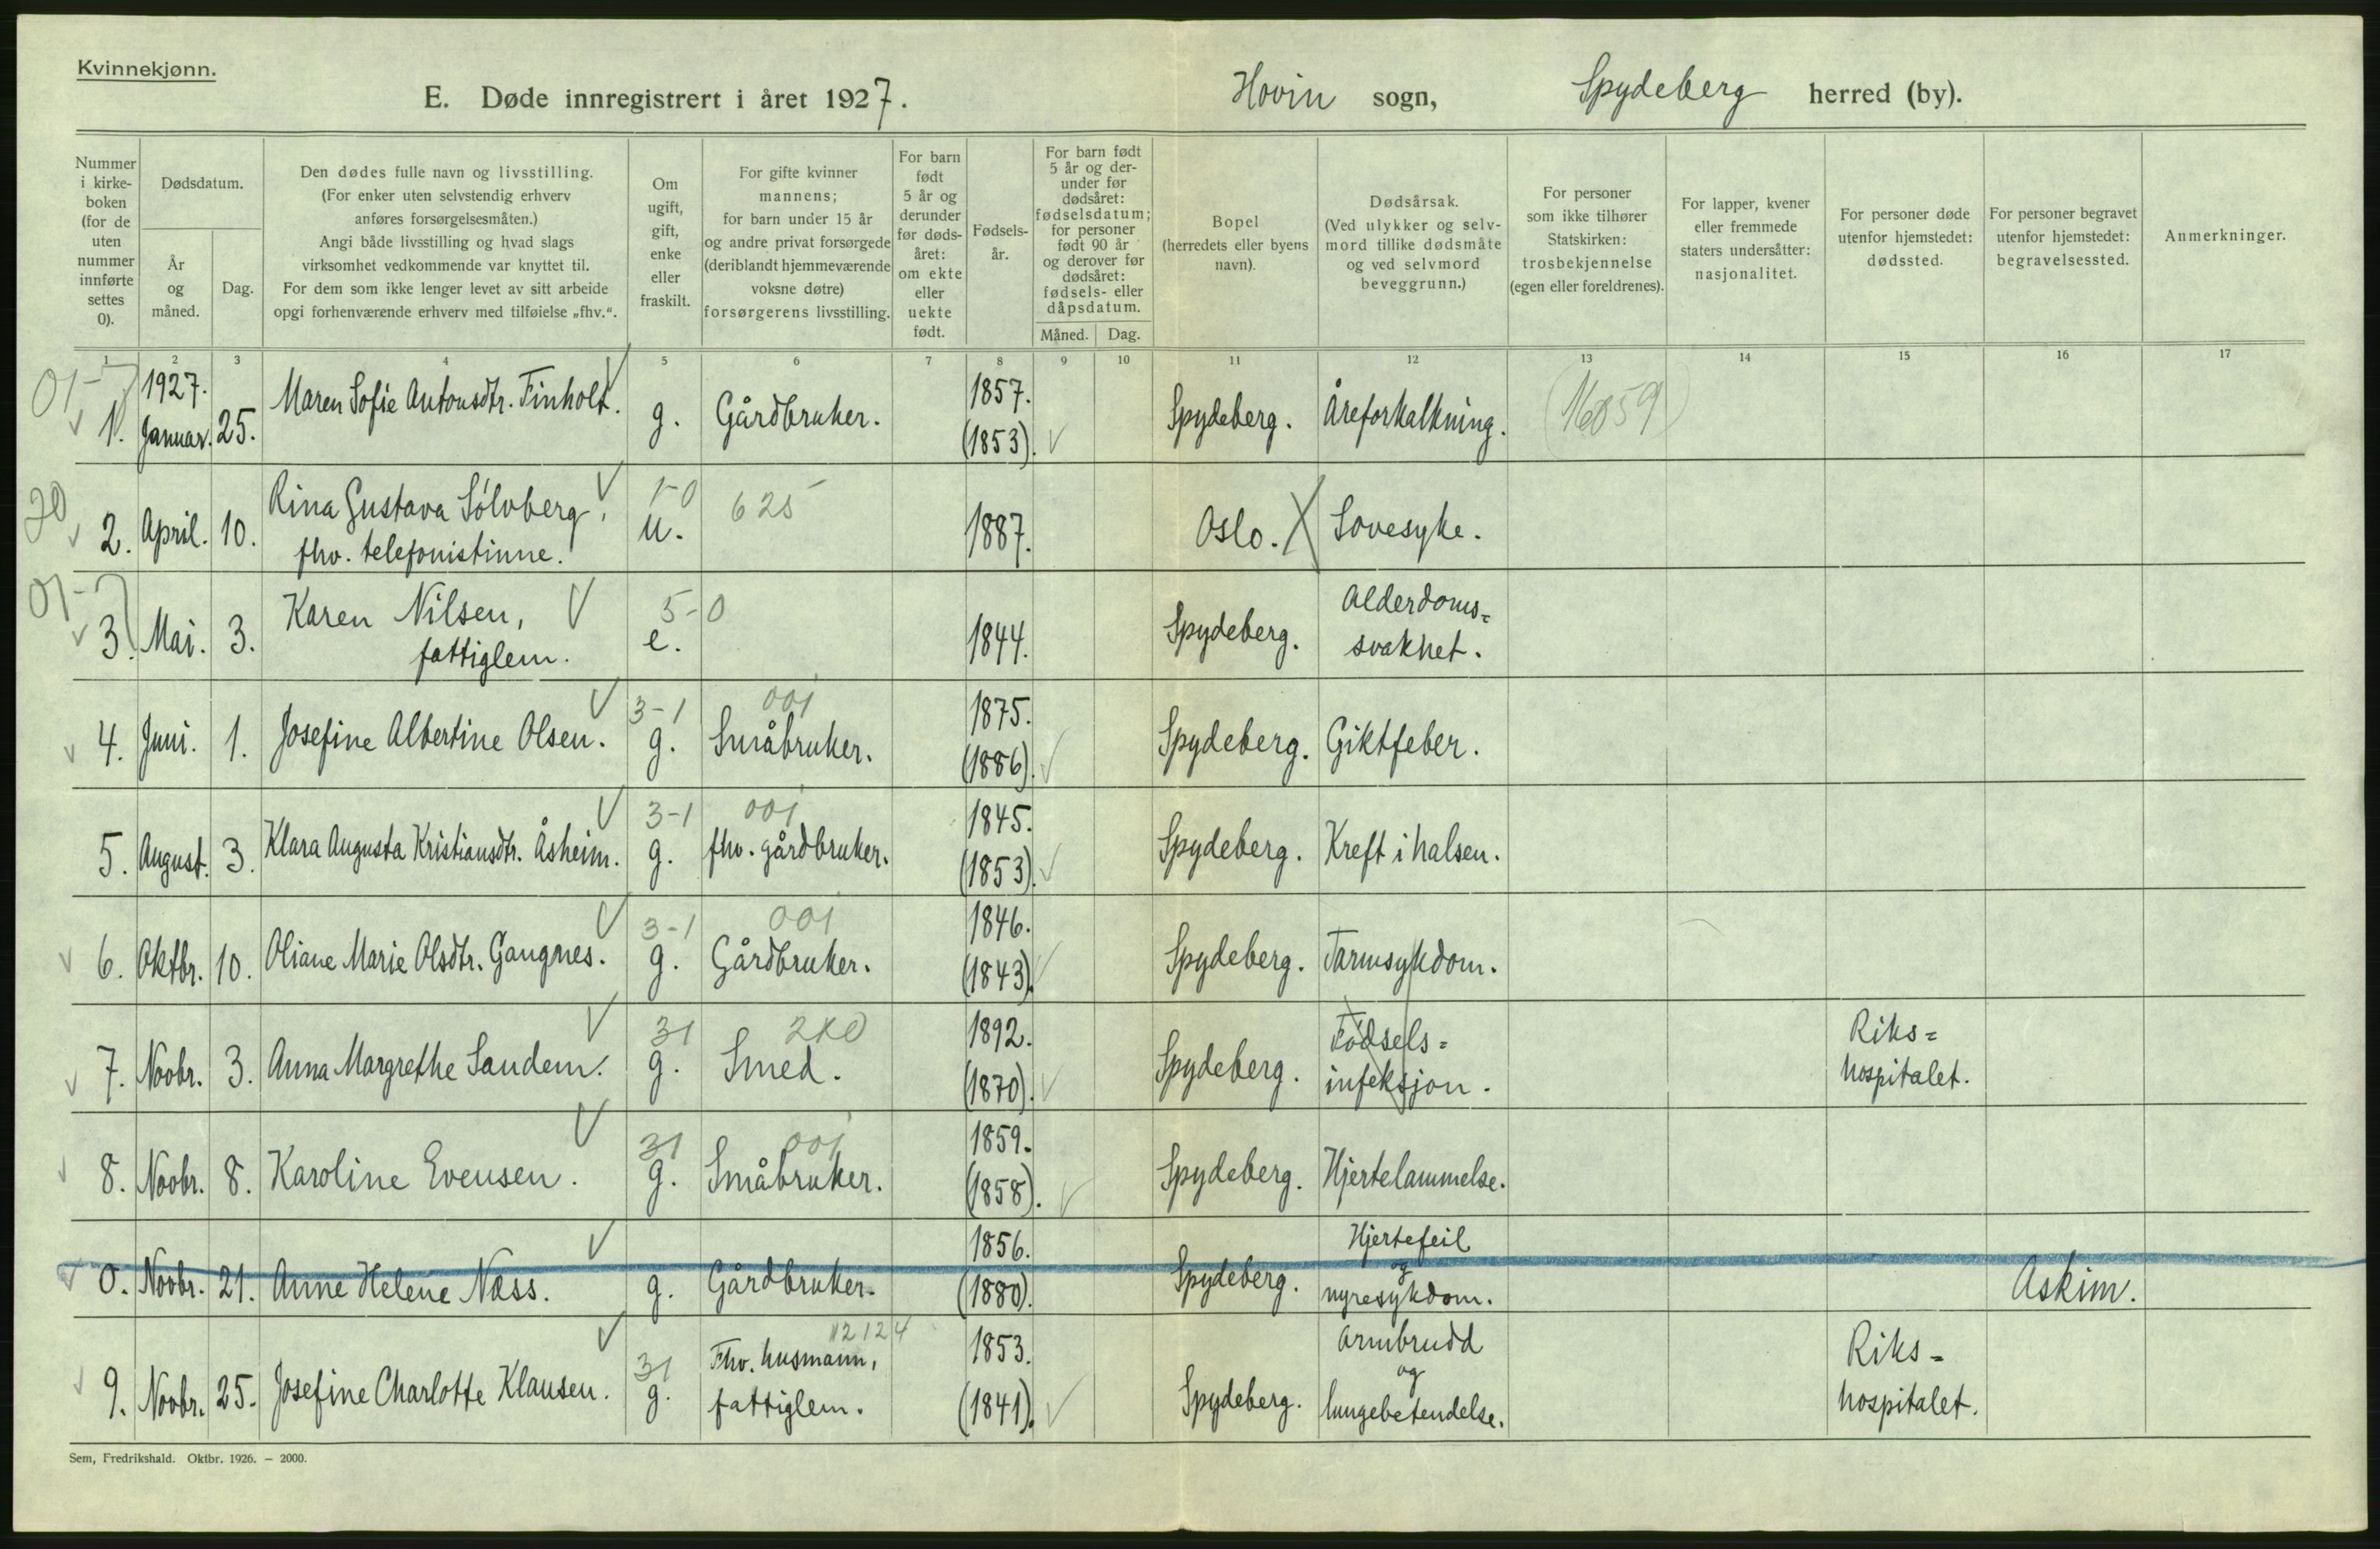 Kvinnekjønn.
E. Døde innregistrert i året 1927.
Hovin sogn, Spydeberg herred (by).
Nummer i kirke-boken (for de uten nummer innførte settes 0).
Dødsdatum.
År og måned.
Dag.
Den dødes fulle navn og livsstilling.
(For enker uten selvstendig erhverv
anføres forsørgelsesmåten.)
Angi både livsstilling og hvad slags
virksomhet vedkommende var knyttet til.
For dem som ikke lenger levet av sitt arbeide
opgi forhenværende erhverv med tilføielse „fhv.“.
Om ugift, gift, enke eller fraskilt.
For gifte kvinner
mannens;
for barn under 15 år
og andre privat forsørgede
(deriblandt hjemmeværende
voksne døtre)
forsørgerens livsstilling.
For barn født 5 år og derunder før døds-året: om ekte eller uekte født.
Fødsels-år.
For barn født
5 år og der-
under før
dødsåret:
fødselsdatum;
for personer
født 90 år
og derover før
dødsåret:
fødsels- eller
dåpsdatum.
Måned. Dag.
Bopel
(herredets eller byens
navn).
Dødsårsak.
(Ved ulykker og selv-
mord tillike dødsmåte
og ved selvmord
beveggrunn.)
For personer
som ikke tilhører
Statskirken:
trosbekjennelse
(egen eller foreldrenes).
For lapper, kvener
eller fremmede
staters undersåtter:
nasjonalitet.
For personer døde
utenfor hjemstedet:
dødssted.
For personer begravet
utenfor hjemstedet:
begravelsessted.
Anmerkninger.
1 2 3 4 5 6 7 8 9 10 11 12 13 14 15 16 17
01-7
1. 1927. Januar. 25. Maren Sofie Antonsdtr. Finholt. g. Gårdbruker. 1857. (1853). Spydeberg. Åreforkalkning.
20
1-0 625
2. April. 10. Rina Gustava Sølvberg, fhv. telefonistinne. u. 1887. Oslo. Sovesyke.
01-7
5-0
3. Mai. 3. Karen Nilsen, fattiglem. e. 1844. Spydeberg. Alderdoms=svakhet.
3-1 001
4. Juni. 1. Josefine Albertine Olsen. g. Småbruker. 1875. (1886). Spydeberg. Giktfeber.
3-1 001
5. August. 3. Klara Augusta Kristiansdtr. Åsheim. g. fhv. gårdbruker. 1845. (1853). Spydeberg. Kreft i halsen.
3-1 001
6. Oktbr. 10. Oliane Marie Olsdtr. Gangnes. g. Gårdbruker. 1846. (1843). Spydeberg. Tarmsykdom.
31
7. Novbr. 3. Anna Margrethe Sandem. g. Smed. 1892. (1870). Spydeberg. Fødsels=infeksjon. Riks=hospitalet.
31 001
8. Novbr. 8. Karoline Evensen. g. Småbruker. 1859. (1858). Spydeberg. Hjertelammelse.
0. Novbr. 21. Anne Helene Næss. g. Gårdbruker. 1856. (1880). Spydeberg. Hjertefeil og nyresykdom. Askim.
31
9. Novbr. 25. Josefine Charlotte Klausen. g. Fhv. husmann, fattiglem. 1853. (1841). Spydeberg. Armbrudd og lungebetendelse. Riks=hospitalet.
Sem, Fredrikshald. Oktbr. 1926. – 2000.